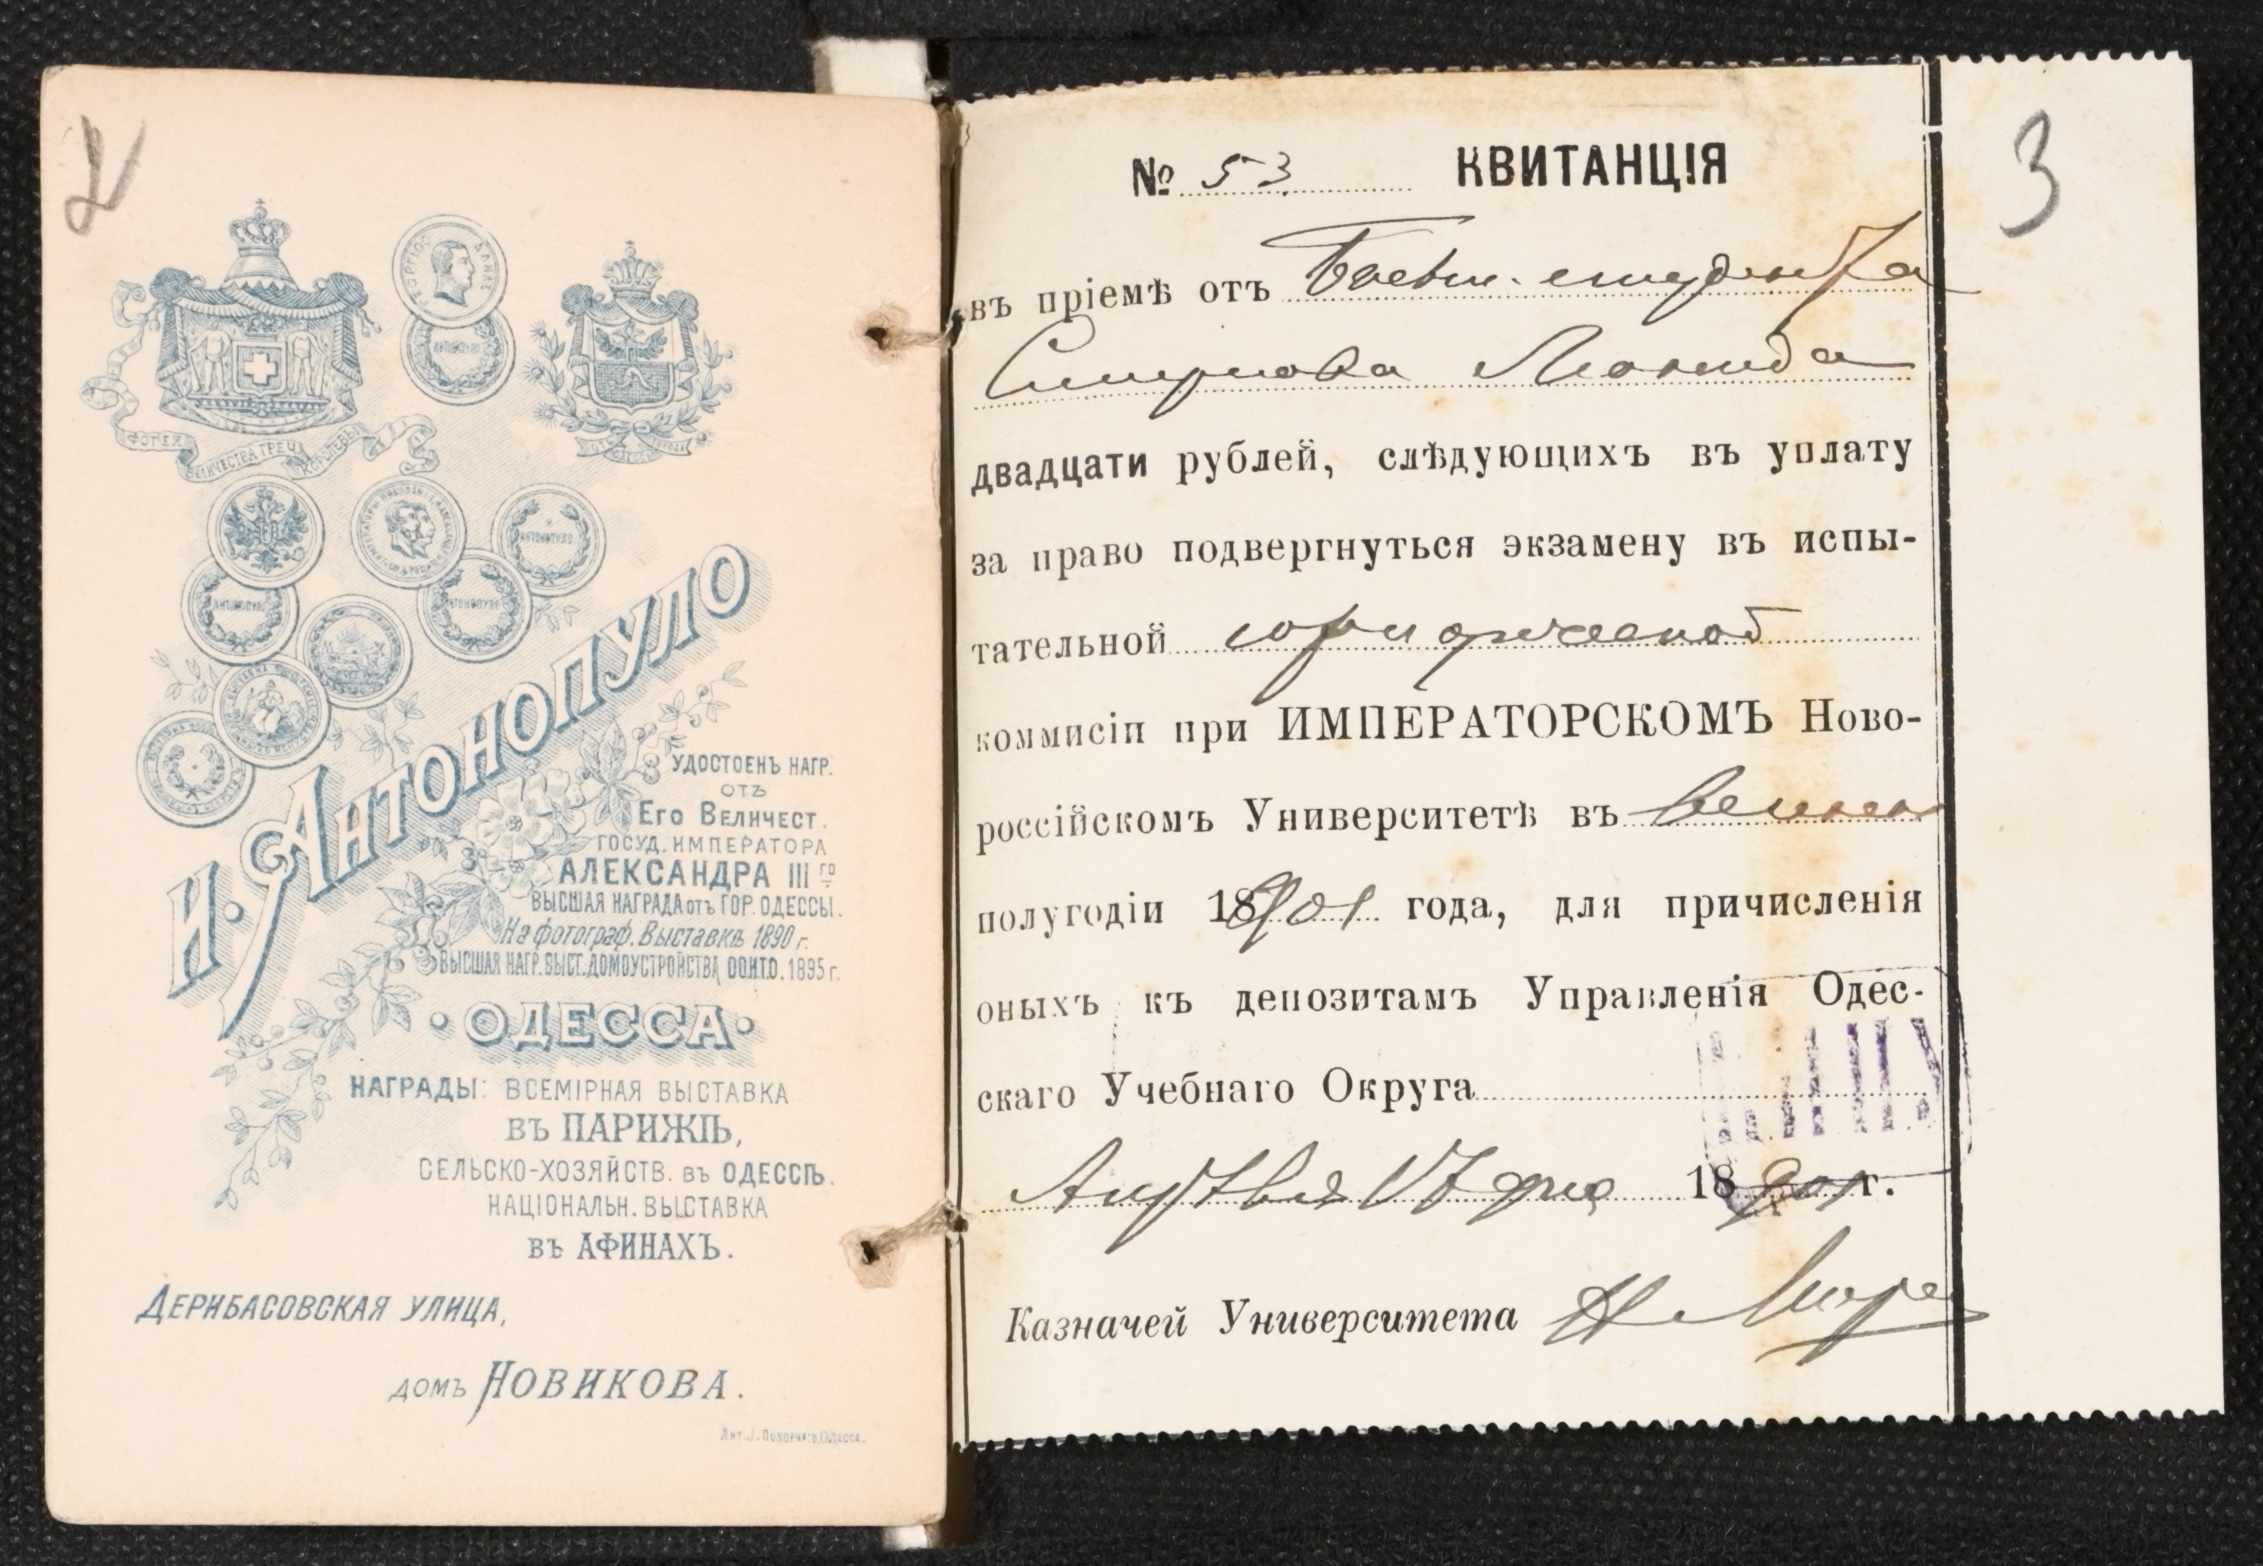 2
И. Антонопуло
УДОСТОЕНЪ НАГР.
ОТЪ
ЕГО ВЕЛИЧЕСТ.
ГОСУД. ИМПЕРАТОРА
АЛЕКСАНДРА III ГО
ВЫСШАЯ НАГРАДА отъ ГОР. ОДЕССЫ.
На фотограф. Выставкѣ 1890 г.
ВЫСШАЯ НАГР. ВЫСТ. ДОМОУСТРОЙСТВА ООИТО. 1895 г.
ОДЕССА
НАГРАДЫ: ВСЕМІРНАЯ ВЫСТАВКА
ВЪ ПАРИЖѢ,
СЕЛЬСКО-ХОЗЯЙСТВ. ВЪ ОДЕССѢ.
НАЦІОНАЛЬН. ВЫСТАВКА
ВЪ АФИНАХЪ.
ДЕРИБАСОВСКАЯ УЛИЦА,
ДОМЪ НОВИКОВА.
3
№ 53 КВИТАНЦІЯ
въ пріемѣ отъ студента
Смирнова Леонида
двадцати рублей, слѣдующихъ въ уплату
за право подвергнуться экзамену въ испы-
тательной юридической
коммисіи при ИМПЕРАТОРСКОМЪ Ново-
россійскомъ Университетѣ въ
полугодіи 1901 года, для причисленія
оныхъ къ депозитамъ Управленія Одес-
скаго Учебнаго Округа
17 дня 1901 г.
Казначей Университета